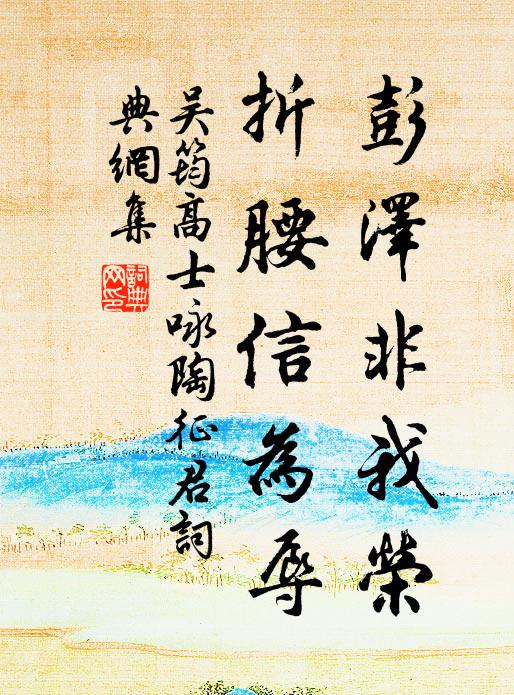 彭澤非我榮
折腰信為辱
吳筠高士咏陶征君詞
典網集
詞典網印